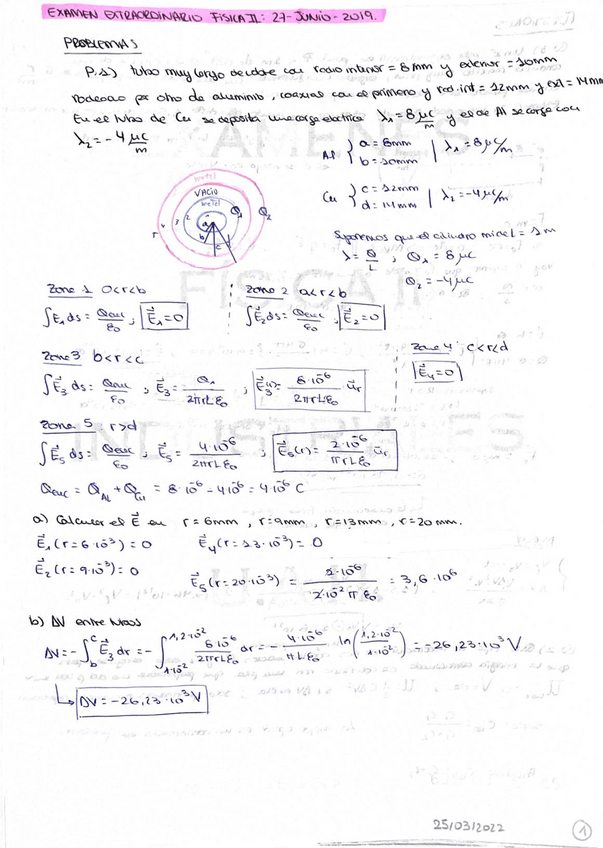 EXAMEN EXTRAORDINARIO FISICA II: 27-JUNIO-2019.
PROBLEMAS
P.1) Tubo muy largo de cobre con radio interior = 8mm y exterior = 10mm
rodeado por otro de aluminio, coaxial con el primero y rad.int = 12mm y ext = 14mm
En el tubo de Cu se deposita una carga electrica λ₁ = 8 μC/m y el de Al se carga con
λ₂ = -4 μC/m
Al { a = 8mm b = 10mm | λ₁ = 8 μC/m
Cu { c = 12mm d = 14mm | λ₂ = -4 μC/m
metal
VACIO
metal
a
b
c
r 4 3 2
Q₁
Q₂
Suponemos que el cilindro mide L = 1m
λ = Q/L ; Q₁ = 8 μC
Q₂ = -4 μC
Zona 1 0<r<b
Zona 2 a<r<b
∫E₁ds = Qenc/ε₀ ; E⃗₁ = 0
∫E⃗₂ds = Qenc/ε₀ ; E⃗₂ = 0
Zona 3 b<r<c
Zona 4 ; c<r<d
∫E⃗₃ ds = Qenc/ε₀ ; E⃗₃ = Q₁/2πrLε₀ ; E⃗₃(r) = 8·10⁻⁶/2πrLε₀ u⃗r
E⃗₄ = 0
Zona 5 : r>d
∫E⃗₅ ds = Qenc/ε₀ ; E⃗₅ = 4·10⁻⁶/2πrLε₀ ; E⃗₅(r) = 2·10⁻⁶/πrLε₀ u⃗r
Qenc = Q_Al + Q_Cu = 8·10⁻⁶ - 4·10⁻⁶ = 4·10⁻⁶ C
a) Calcular el E⃗ en r = 6mm , r = 9mm , r = 13mm , r = 20mm.
E⃗₁(r = 6·10⁻³) = 0 E⃗₄(r = 13·10⁻³) = 0
E⃗₂(r = 9·10⁻³) = 0 E⃗₅(r = 20·10⁻³) = 2·10⁻⁶/2·10⁻²π ε₀ = 3,6·10⁶
b) ΔV entre tubos
ΔV = -∫_b^c E⃗₃ dr = -∫_{1·10⁻²}^{1,2·10⁻²} 8·10⁻⁶/2πrLε₀ dr = - 4·10⁻⁶/πLε₀ ln(1,2·10⁻²/1·10⁻²) = -26,23·10³ V
ΔV = -26,23·10³ V
25/03/2022
1